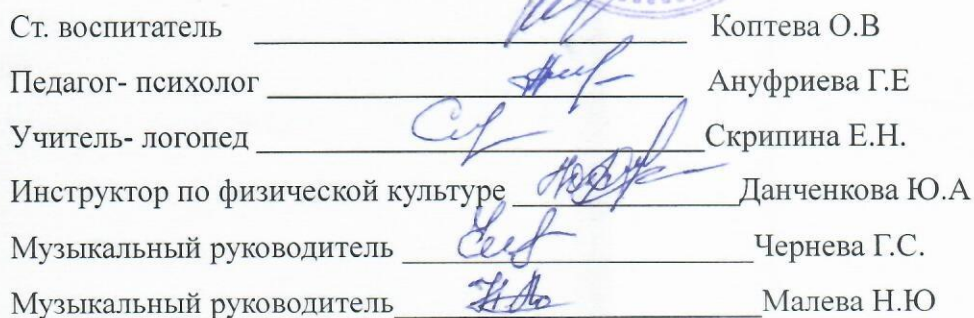 Ст. воспитатель ____________ Коптева О.В
Педагог- психолог ____________ Ануфриева Г.Е
Учитель- логопед ____________ Скрипина Е.Н.
Инструктор по физической культуре ____________ Данченкова Ю.А
Музыкальный руководитель ____________ Чернева Г.С.
Музыкальный руководитель ____________ Малева Н.Ю